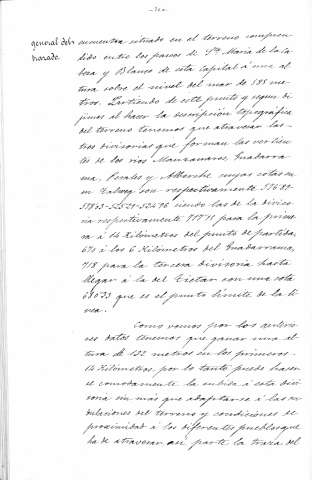 general del trazado.
encuentra situado en el terreno compren-
dido entre los paseos de Sta. María de la Ca-
beza y Blanco de esta capital á una al-
tura sobre el nivel del mar de 585 me-
tros. Partiendo de este punto y segun di-
jimos al hacer la descripción topográfica
del terreno tenemos que atravesar las
tres divisorias que forman las vertien-
tes de los rios Manzanares Guadarra
ma, Perales y Alberche cuyas cotas en
su Talweg son respectivamente
siendo las de la diviso-
ria respectivamente 717'71 para la prime-
ra á 14 Kilómetros del punto de partida,
673 á los 6 Kilometros del Guadarrama,
718 para la tercera divisoria hasta
llegar á la del Tietar con una cota
680'33 que es el punto límite de la lí-
nea.
Como vemos por los anterio-
res datos tenemos que ganar una al-
tura de 132 metros en los primeros
14 Kilómetros, por lo tanto puede hacer-
se comodamente la subida á esta divi-
soria sin más que adaptarse á las on-
dulaciones del terreno y condiciones de
proximidad á los diferentes pueblos que
ha de atravesar en parte la traza del